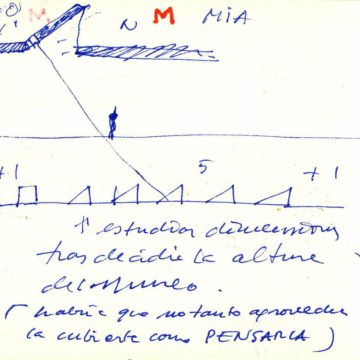 M N M MIA
+1 5 + 1
estudiar dimensiones
tras decidir la altura
del museo.
(habría que no tanto aprovechar
la cubierta como PENSARLA)